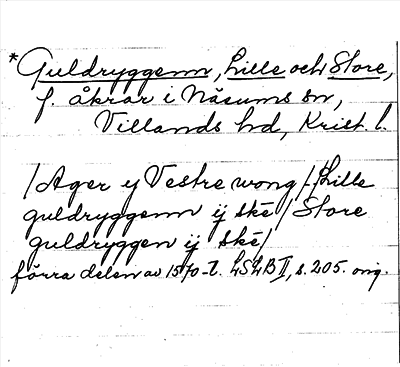 *Guldryggenn, Lille och Store,
f. åkrar i Näsums sn,
Villands hd, Krist. l.
/Ager y Vestre wong/./Lille
guldryggenn ij skē/Store
guldryggen ij skē/
förra delen av 1570-t. LSLB II, s. 205. orig.